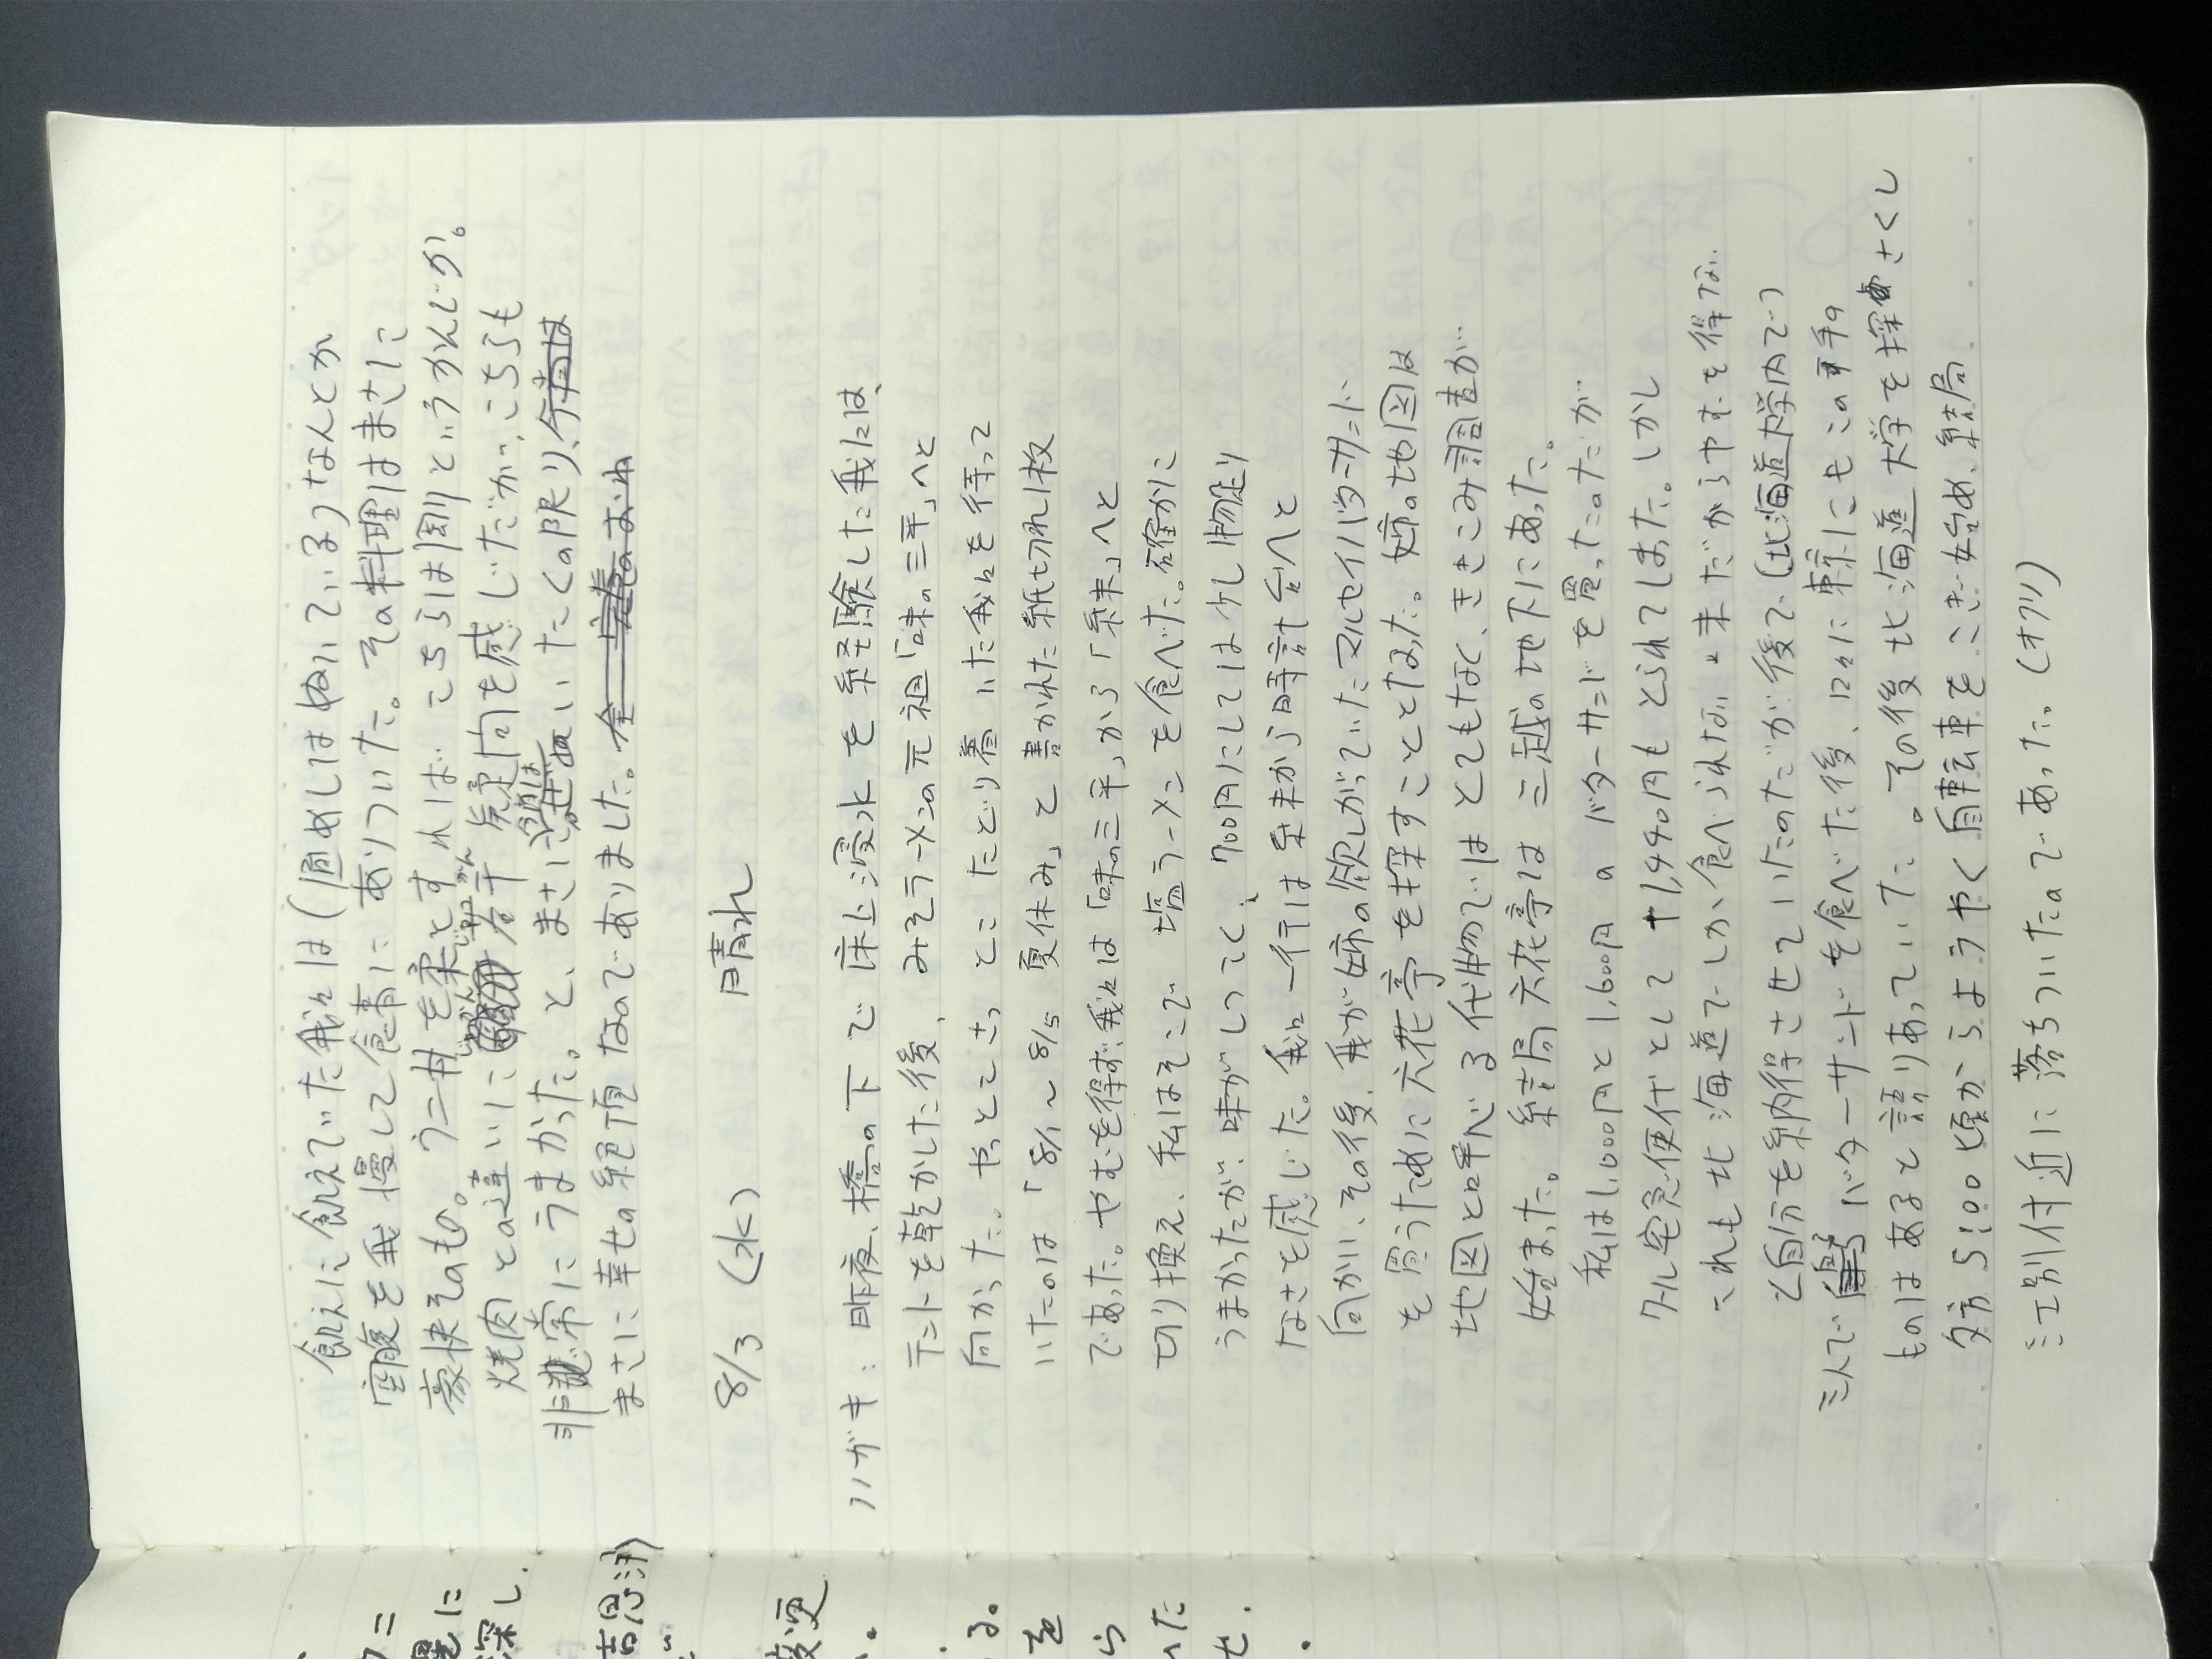 飢えに飢えていた我々は(昼めしはぬいている)なんとか
空腹を我慢して食事にありついた。その料理はまさに
豪快そのもの。ウニ丼を柔とすればこちらは剛というかんじか。
焼肉との違いに若干戸惑を感じだが、こちらも
非常にうまかった。と、まさにぜいたくの限り、
まさに幸せの絶頂なのでありました。
8/3 (水) 晴れ
ハガキ:昨夜、橋の下で床上浸水を経験した我々は、
テントを乾かした後、みそラーメンの元祖「味の三平」へと
向かった。やっとこさっとこたどり着いた我々を待って
いたのは「8/1〜8/5 夏休み」と書かれた紙切れ1枚
であった。やむを得ず、我々は「味の三平」から「糸末」へと
切り換え、私はそこで塩ラーメンを食べた。確かに
うまかったが、味がしつこく、700円にしては少し物足り
なさを感じた。我々一行は糸末から時計台へと
向かい、その後、我が姉の欲しがっていたマルセイバターサンド
を買うために六花亭を探すこととなった。姉の地図は
地図と呼べる代物ではとてもなく、ききこみ調査が
始まった。結局六花亭は三越の地下にあった。
私は1,000円と1,600円のバターサンドを買ったのだが
クール宅急便代として+1,440円もとられてしまった。しかし
これも北海道でしか食べられない味だからやむを得ない
と自分を納得させていたのだが後で(北海道大学内で)
三人でバターサンドを食べた後、口々に東京にもこの手の
ものはあると語りあっていた。その後北海道大学を探さくし
夕方5:00頃からようやく自転車をこぎ始め、結局
江別付近に落ちついたのであった。(オワリ)